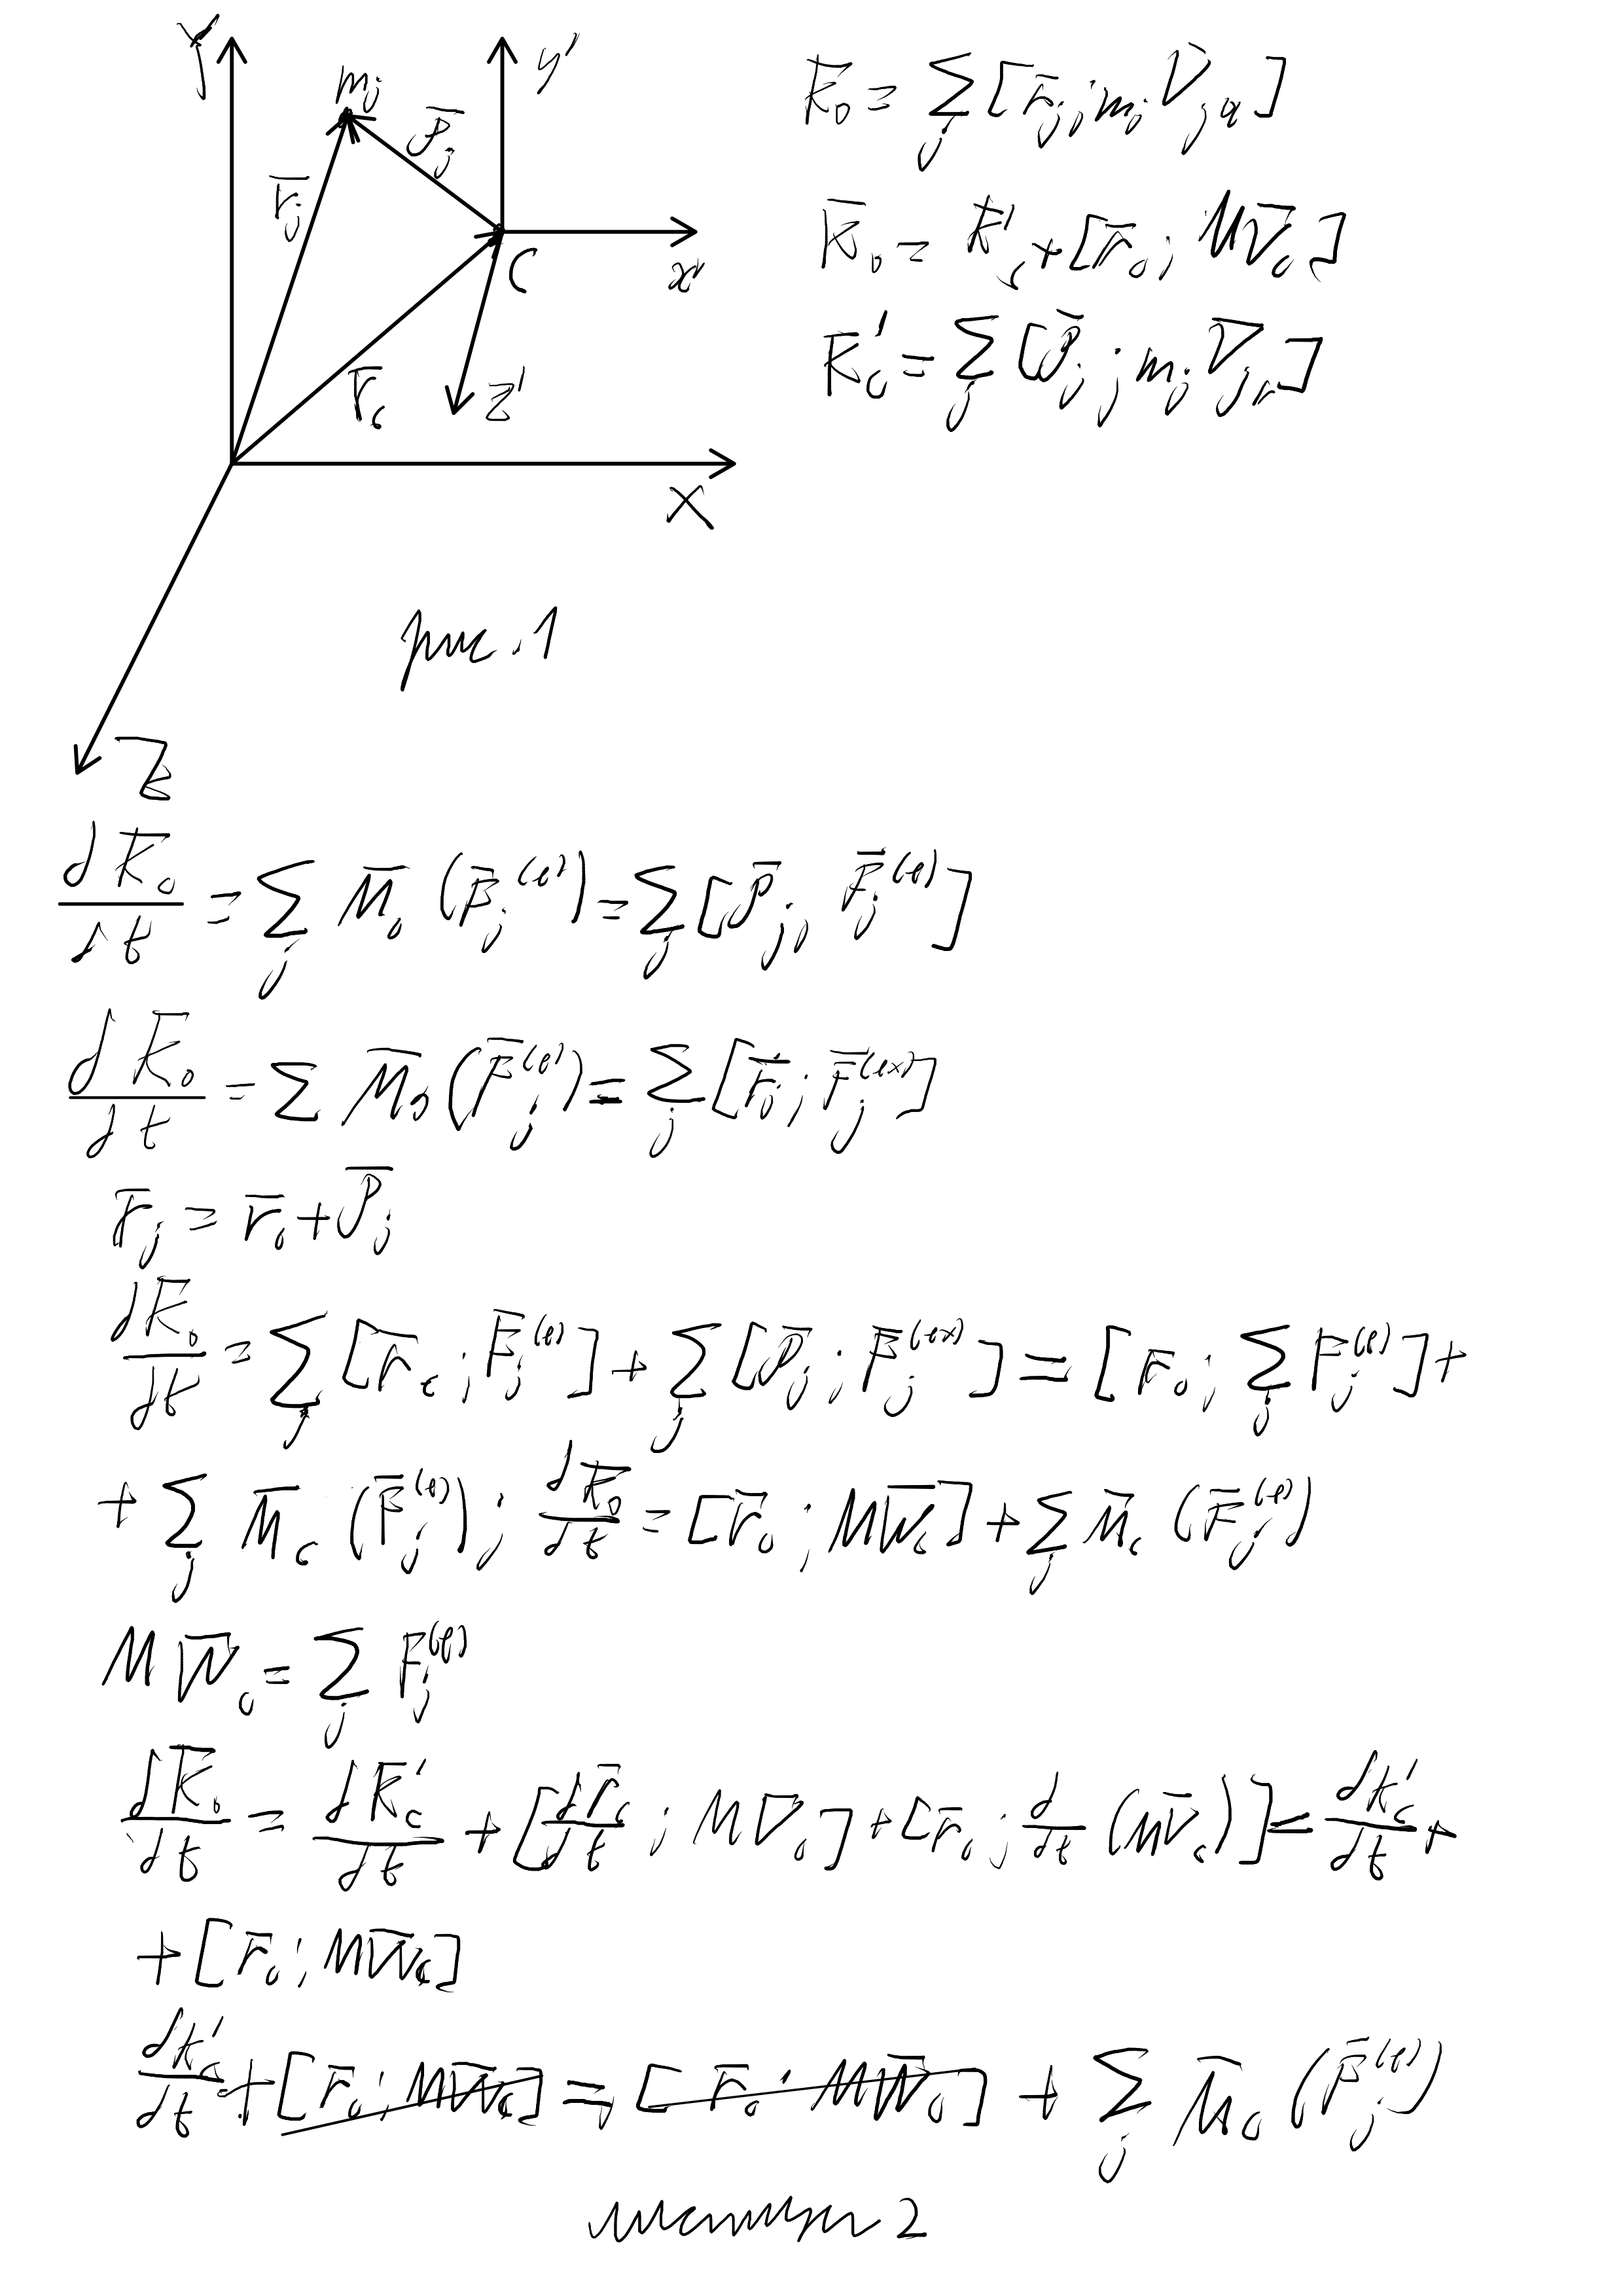 Y
y'
m_j
ρ̄_j
r̄_j
C
x'
r̄_c
z'
X
рис.1
Z
K̄_o = Σ_j [r̄_j; m_j V̄_ja]
K̄_o = K̄'_c + [r̄_c; MV̄_c]
K̄'_c = Σ_j [ρ̄_j; m_j V̄_jr]
dK̄_c/dt = Σ_j M̄_c (F̄_j^(e)) = Σ_j [ρ̄_j, F̄_j^(e)]
dK̄_o/dt = Σ M̄_o (F̄_j^(e)) = Σ_j [r̄_j; F̄_j^(ex)]
r̄_j = r̄_c + ρ̄_j
dK̄_o/dt = Σ_j [r̄_c; F̄_j^(e)] + Σ_j [ρ̄_j; F̄_j^(ex)] = [r̄_c; Σ_j F̄_j^(e)] +
+ Σ_j M̄_c (F̄_j^(e)); dK̄_o/dt = [r̄_c; MW̄_c] + Σ_j M̄_c (F̄_j^(e))
MW̄_c = Σ_j F̄_j^(e)
dK̄_o/dt = dK̄'_c/dt + [dr̄_c/dt; MV̄_c] + [r̄_c; d/dt (MV̄_c)] = dK̄'_c/dt +
+ [r̄_c; MW̄_c]
dK̄'_c/dt + [r̄_c; MW̄_c] = [r̄_c; MW̄_c] + Σ_j M̄_c (F̄_j^(e))
2